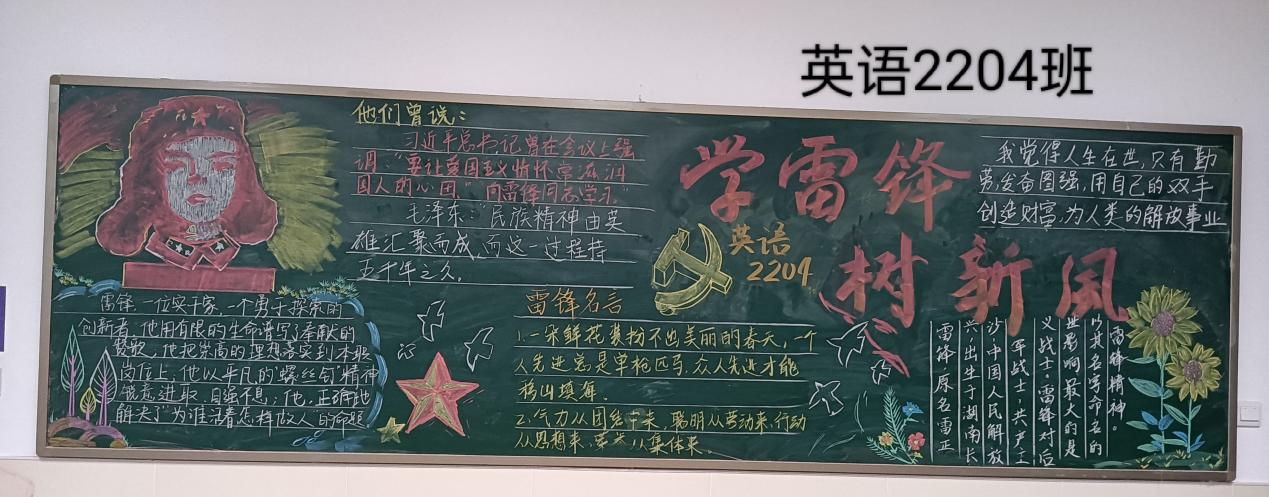 英语2204班
他们曾说：
习近平总书记曾在会议上强
调："要让爱国主义情怀常流淌
国人的心田。""向雷锋同志学习"
毛泽东："民族精神由英
雄汇聚而成，而这一过程持
五千年之久。
学雷锋
树新风
英语
2204
我觉得人生在世，只有勤
劳，发奋图强，用自己的双手
创造财富，为人类的解放事业
雷锋，一位实干家，一个勇于探索的
创新者，他用有限的生命谱写了奉献的
赞歌，他把崇高的理想落实到本职
岗位上，他以平凡的"螺丝钉"精神
锐意进取，自强不息；他，正确地
解决了"为谁活着，怎样做人"的命题
雷锋名言
1.一朵鲜花装扮不出美丽的春天，一个
人先进总是单枪匹马，众人先进才能
移山填海。
2.气力从团结中来，聪明从劳动来，行动
从思想来，荣誉从集体来。
雷锋，原名雷正
兴，出生于湖南长
沙，中国人民解放
军战士，共产主
义战士，雷锋对后
世影响最大的是
以其名字命名的
雷锋精神。